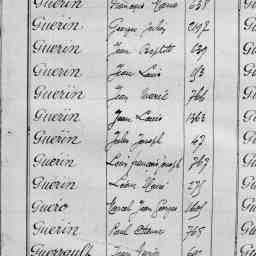 Guerin François Marie 638
Guerin Georges Julien
Guerin Jean Baptiste 639
Guerin Jean Louis 913
Guerin Jean Marie 766
Guerin Jean Louis 1363
Guerin Jules Joseph 47
Guerin Louis françois Joseph 767
Guerin Léon René 275
Guero Marcel Jean Georges
Guerin Paul Etienne 765
Guerrault Jean